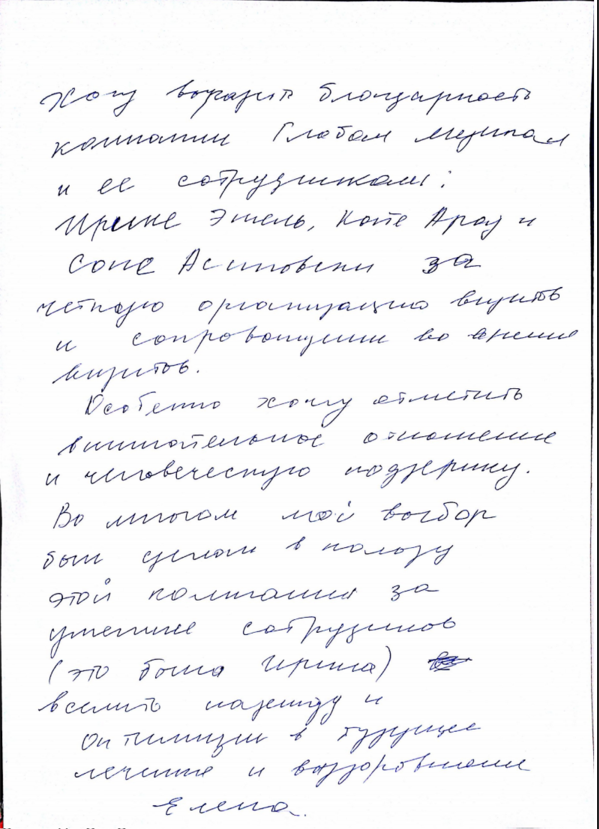 Хочу выразить благодарность
компании Глобал медикал
и ее сотрудникам:
Ирине Эшель, Кате Арад и
Соне Асиновски за
четкую организацию визитов
и сопровождении во время
визитов.
Особенно хочу отметить
внимательное отношение
и человеческую поддержку.
Во многом мой выбор
был сделан в пользу
этой компании за
умение сотрудников
(это была Ирина)
вселить надежду и
оптимизм в будущее
лечение и выздоровление
Елена.